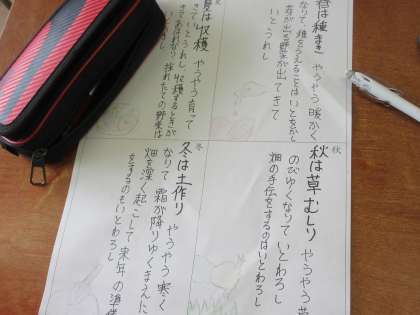 春は種まき やうやう暖かく
なりて、畑をうえることはいとをかし
芽が出る野菜が出てきて
いとうれし
夏は収穫 やうやう育って
きていとうれし、収穫するときが
きてあはれなり 採れたての野菜は
秋
秋は草むしり やうやう草
のびゆくなりていとわろし
畑の手伝をするのはいとわろし
冬
冬は土作り やうやう寒く
なりて 霜が降りゆくまえに、
畑を深く起こして来年の準備
をするのもいとわろし